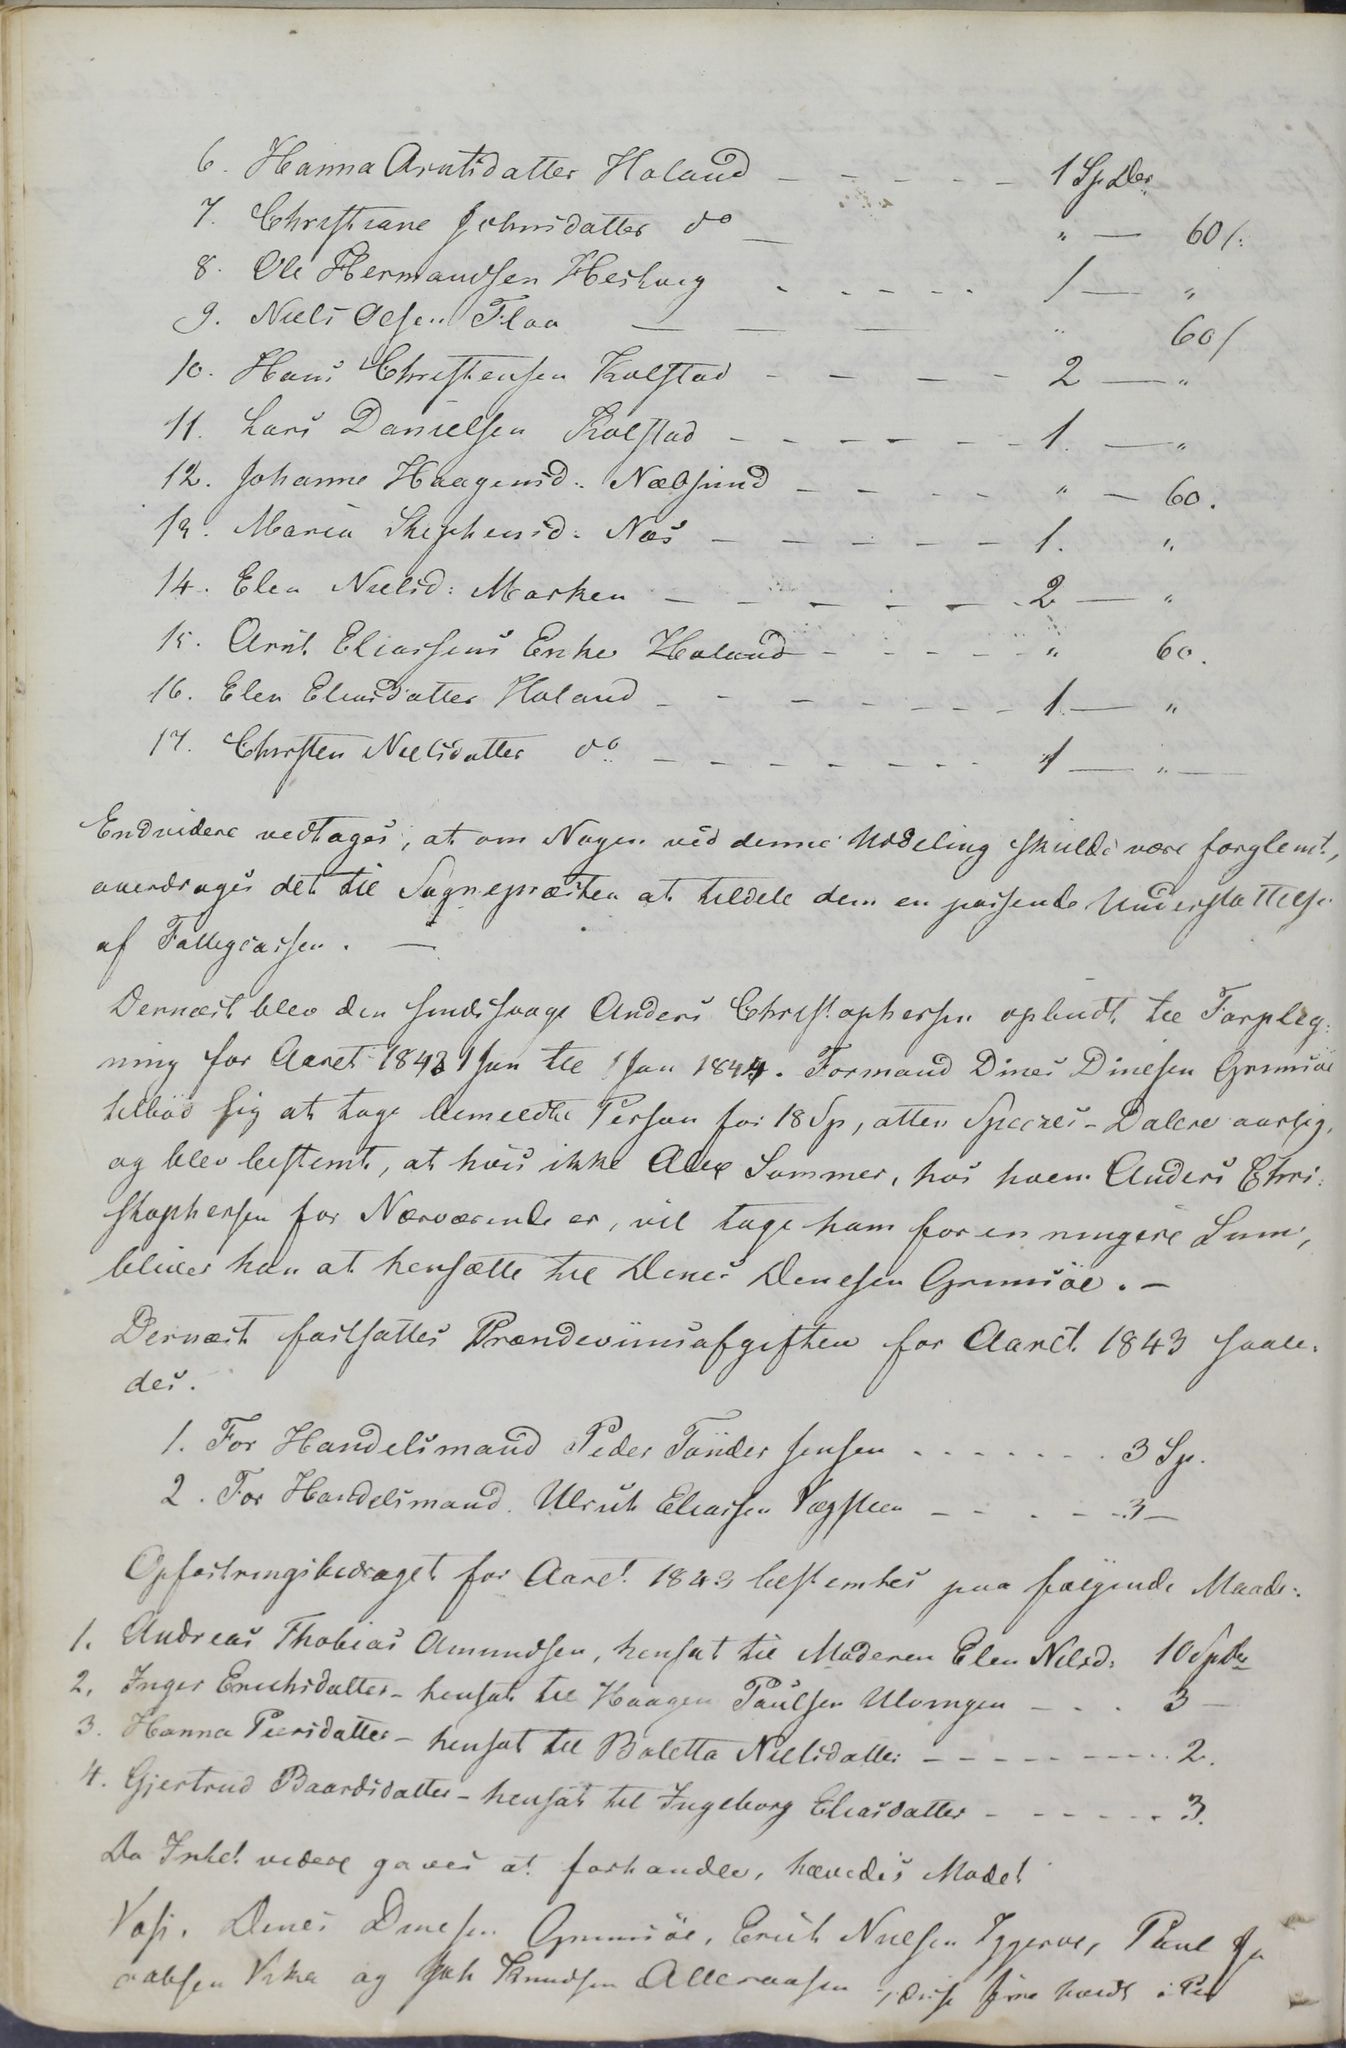 6. Hanna Arntsdatter Holand - - - - - 1 Sp Dlr.
7. Christiane Johnsdatter do — " — 60 /:
8. Ole Hermandsen Hestveg - - - - - 1 — "
9. Niels Olsen Flaa — — — " 60 /
10. Hans Christensen Kolstad - - - - 2 — "
11. Lars Danielsen Kolstad - - - - - - 1. — "
12. Johanne Haagensd: Næbsund - - - - " — 60.
13. Maria Stephensd: Næs - - - - - - 1. "
14. Elen Nielsd: Marken - - - - - - 2 — "
15. Arnt Eliassens Enke Holand - - - - - " 60.
16. Elen Eliasdatter Holand - - - - - - - 1 — "
17. Chirsten Nielsdatter do - - - - - - - 1 — " —
Endvidere vedtoges, at om Nogen ved denne Uddeling skulde være forglemt,
overdroges det til Sognepræsten at tildele dem en passende Understøttelse
af Fattigcassen. —
Dernæst blev den sindssvage Anders Christophersen opbudt til Forpleg:
ning for Aaret 1843 1 Jan til 1 Jan 1844. Formand Dines Dinesen Grimsöe
tilbød sig at tage bemeldte Person for 18 Sp, atten Species-Dalere aarlig,
og blev bestemt, at hvis ikke Alex Sommer, hos hvem Anders Chri:
stophersen for Nærværende er, vil tage ham for en ringere Sum,
bliver han at hensætte til Dines Dinesen Grimsöe. -
Dernæst fastsattes Brændeviinsafgiften for Aaret 1843 saale:
des.
1. For Handelsmand Peder Tönder Jensen - - - - - - - 3 Sp.
2. For Handelsmand Ulrik Eliassen Vægsteen - - - - - 3 —
Opfostringsbidraget for Aaret 1843 bestemtes paa følgende Maade:
1. Andreas Thobias Amundsen, hensat til Moderen Elen Nilsd: 10 Spdlr
2. Inger Erichsdatter - hensat til Haagen Paulsen Ulvingen - - - 3 —
3. Hanna Peersdatter - hensat til Boletta Nielsdatter - - - - - - - - 2.
4. Gjertrud Baardsdatter - hensat til Ingeborg Eliasdatter - - - - - - 3.
Da Intet videre gaves at forhandle, hævedes Mødet
Dines Dinesen Grimsöe, Erich Nielsen Paul Ja
cobsen Vika og Joh Knudsen Alleraasen disse fire